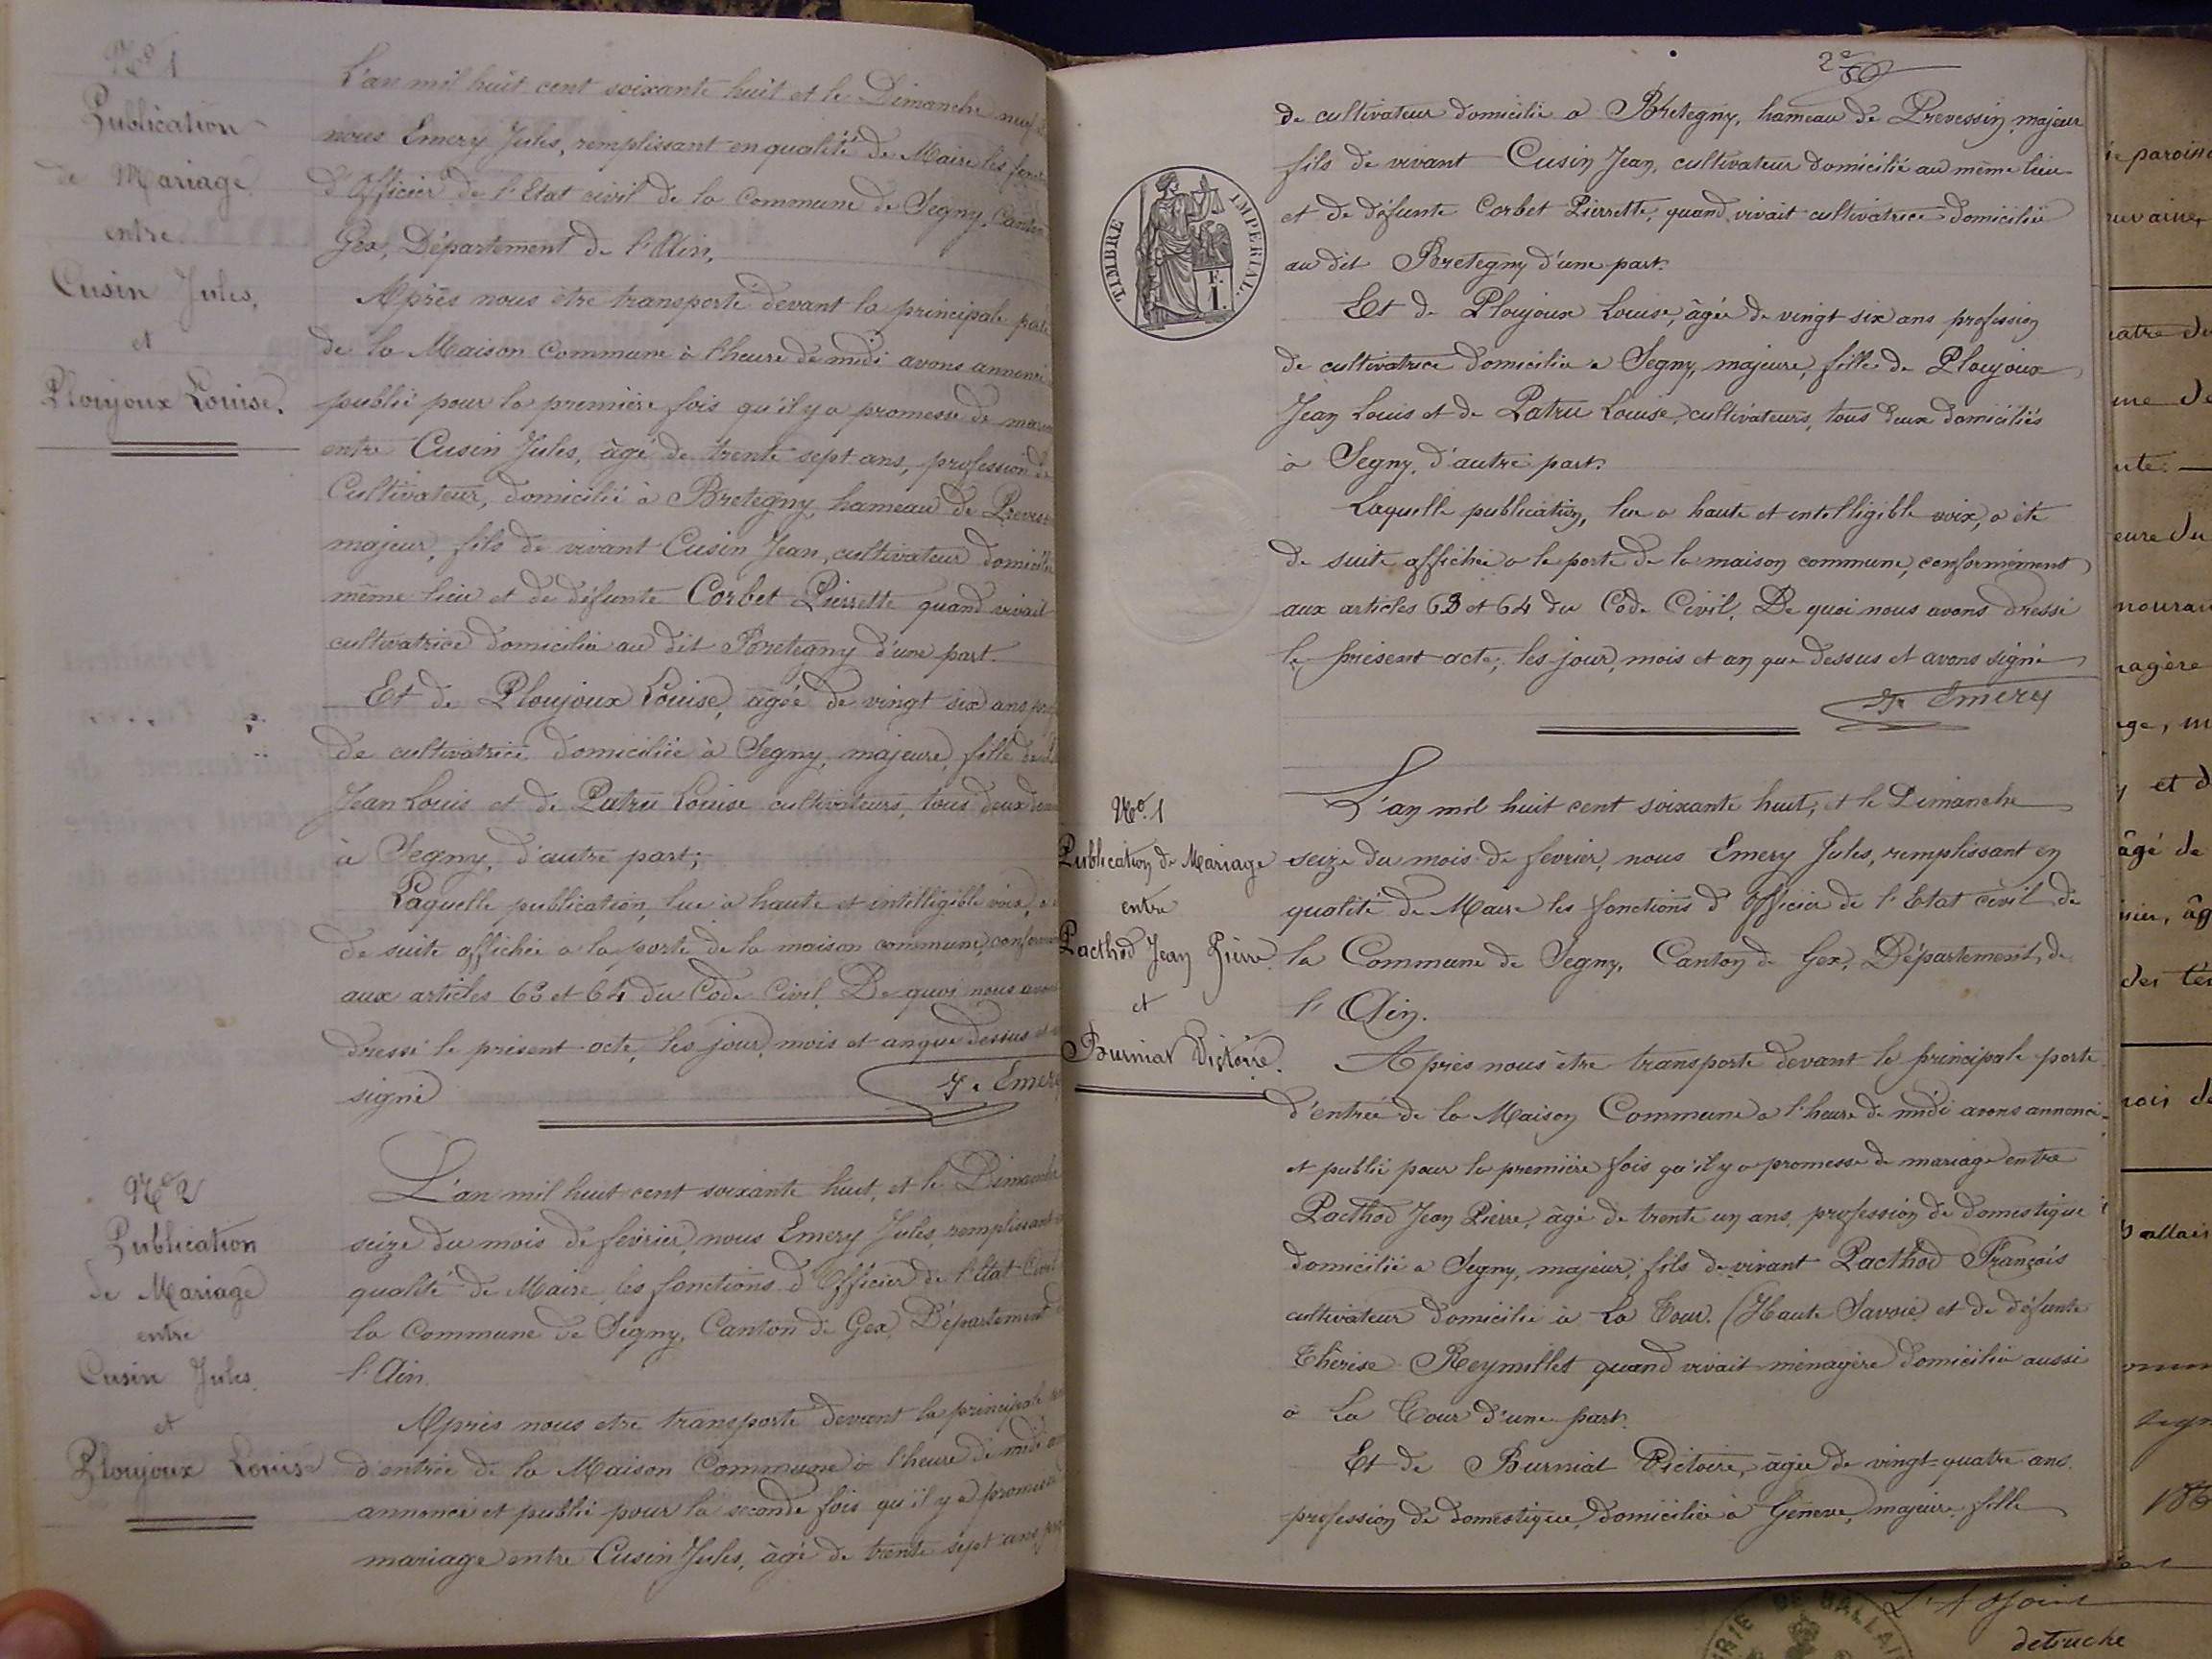 No 1
Publication
de Mariage
entre
Cusin Jules,
et
Ploujoux Louise.
L'an mil huit cent soixante huit et le Dimanche neuf
nous Emery Jules, remplissant en qualité de Maire les
d'Officier de l'Etat civil de la Commune de Segny, Canton
Gex, Département de l'Ain,
Après nous être transporté devant la principale porte
de la Maison Commune à l'heure de midi avons annoncé
publié pour la première fois qu'il y a promesse de
entre Cusin Jules, âgé de trente sept ans, profession de
Cultivateur, domicilié à Bretegny, hameau de
majeur, fils de vivant Cusin Jean, cultivateur
même lieu et de défunte Corbet Pierrette quand vivait
cultivatrice domicilié au dit Bretegny d'une part.
Et de Ploujoux Louise, âgée de vingt six ans
de cultivatrice domiciliée à Segny, majeure, fille
Jean Louis et de Patru Louise cultivateurs, tous deux
à Segny, d'autre part;
Laquelle publication, lue à haute et intelligible voix, a
de suite affichée a la porte de la maison commune,
aux articles 63 et 64 du Code Civil. De quoi nous avons
dressé le présent acte, les jour, mois et an que dessus et
signé
J. Emery
No 2
Publication
de Mariage
entre
Cusin Jules
et
Ploujoux Louise
L'an mil huit cent soixante huit, et le Dimanche
seize du mois de février, nous Emery Jules, remplissant
qualité de Maire les fonctions d'Officier de l'Etat Civil
la Commune de Segny, Canton de Gex, Département
l'Ain.
Après nous etre transporté devant la principale
d'entrée de la Maison Commune à l'heure de midi
annoncé et publié pour la seconde fois qu'il y a
mariage entre Cusin Jules, âgé de trente sept ans
2e
de cultivateur domicilié a Bretegny, hameau de Prevessin, majeur
fils de vivant Cusin Jean, cultivateur domicilié au même lieu
et de défunte Corbet Pierrette, quand vivait cultivatrice domiciliée
au dit Bretegny d'une part.
Et de Ploujoux Louise, âgée de vingt six ans profession
de cultivatrice domiciliée a Segny, majeure, fille de Ploujoux
Jean Louis et de Patru Louise, cultivateurs, tous deux domiciliés
à Segny, d'autre part.
Laquelle publication, lue a haute et intelligible voix, a été
de suite affichée a la porte de la maison commune, conformément
aux articles 63 et 64 du Code Civil. De quoi nous avons dressé
le présent acte, les jour, mois et an que dessus et avons signé
J. Emery
TIMBRE IMPERIAL
F.
1.
No. 1
Publication de Mariage
entre
Pacthod Jean Pierre.
et
Burniat Victoire.
L'an mil huit cent soixante huit, et le Dimanche
seize du mois de fevrier, nous Emery Jules, remplissant en
qualité de Maire les fonctions d'Officier de l'Etat civil de
la Commune de Segny, Canton de Gex, Département, de
l'Ain.
Après nous être transporté devant la principale porte
d'entrée de la Maison Commune a l'heure de midi avons annoncé
et publié pour la première fois qu'il y a promesse de mariage entre
Pacthod Jean Pierre, âgé de trente un ans, profession de domestique
domicilié a Segny, majeur, fils de vivant Pacthod François
cultivateur domicilié à La Tour. (Haute Savoie) et de défunte
Thérèse Reymillet quand vivait ménagère domiciliée aussi
à La Tour d'une part.
Et de Burniat Victoire, âgée de vingt-quatre ans.
profession de domestique, domiciliée à Genève, majeure, fille
et d
âgé de